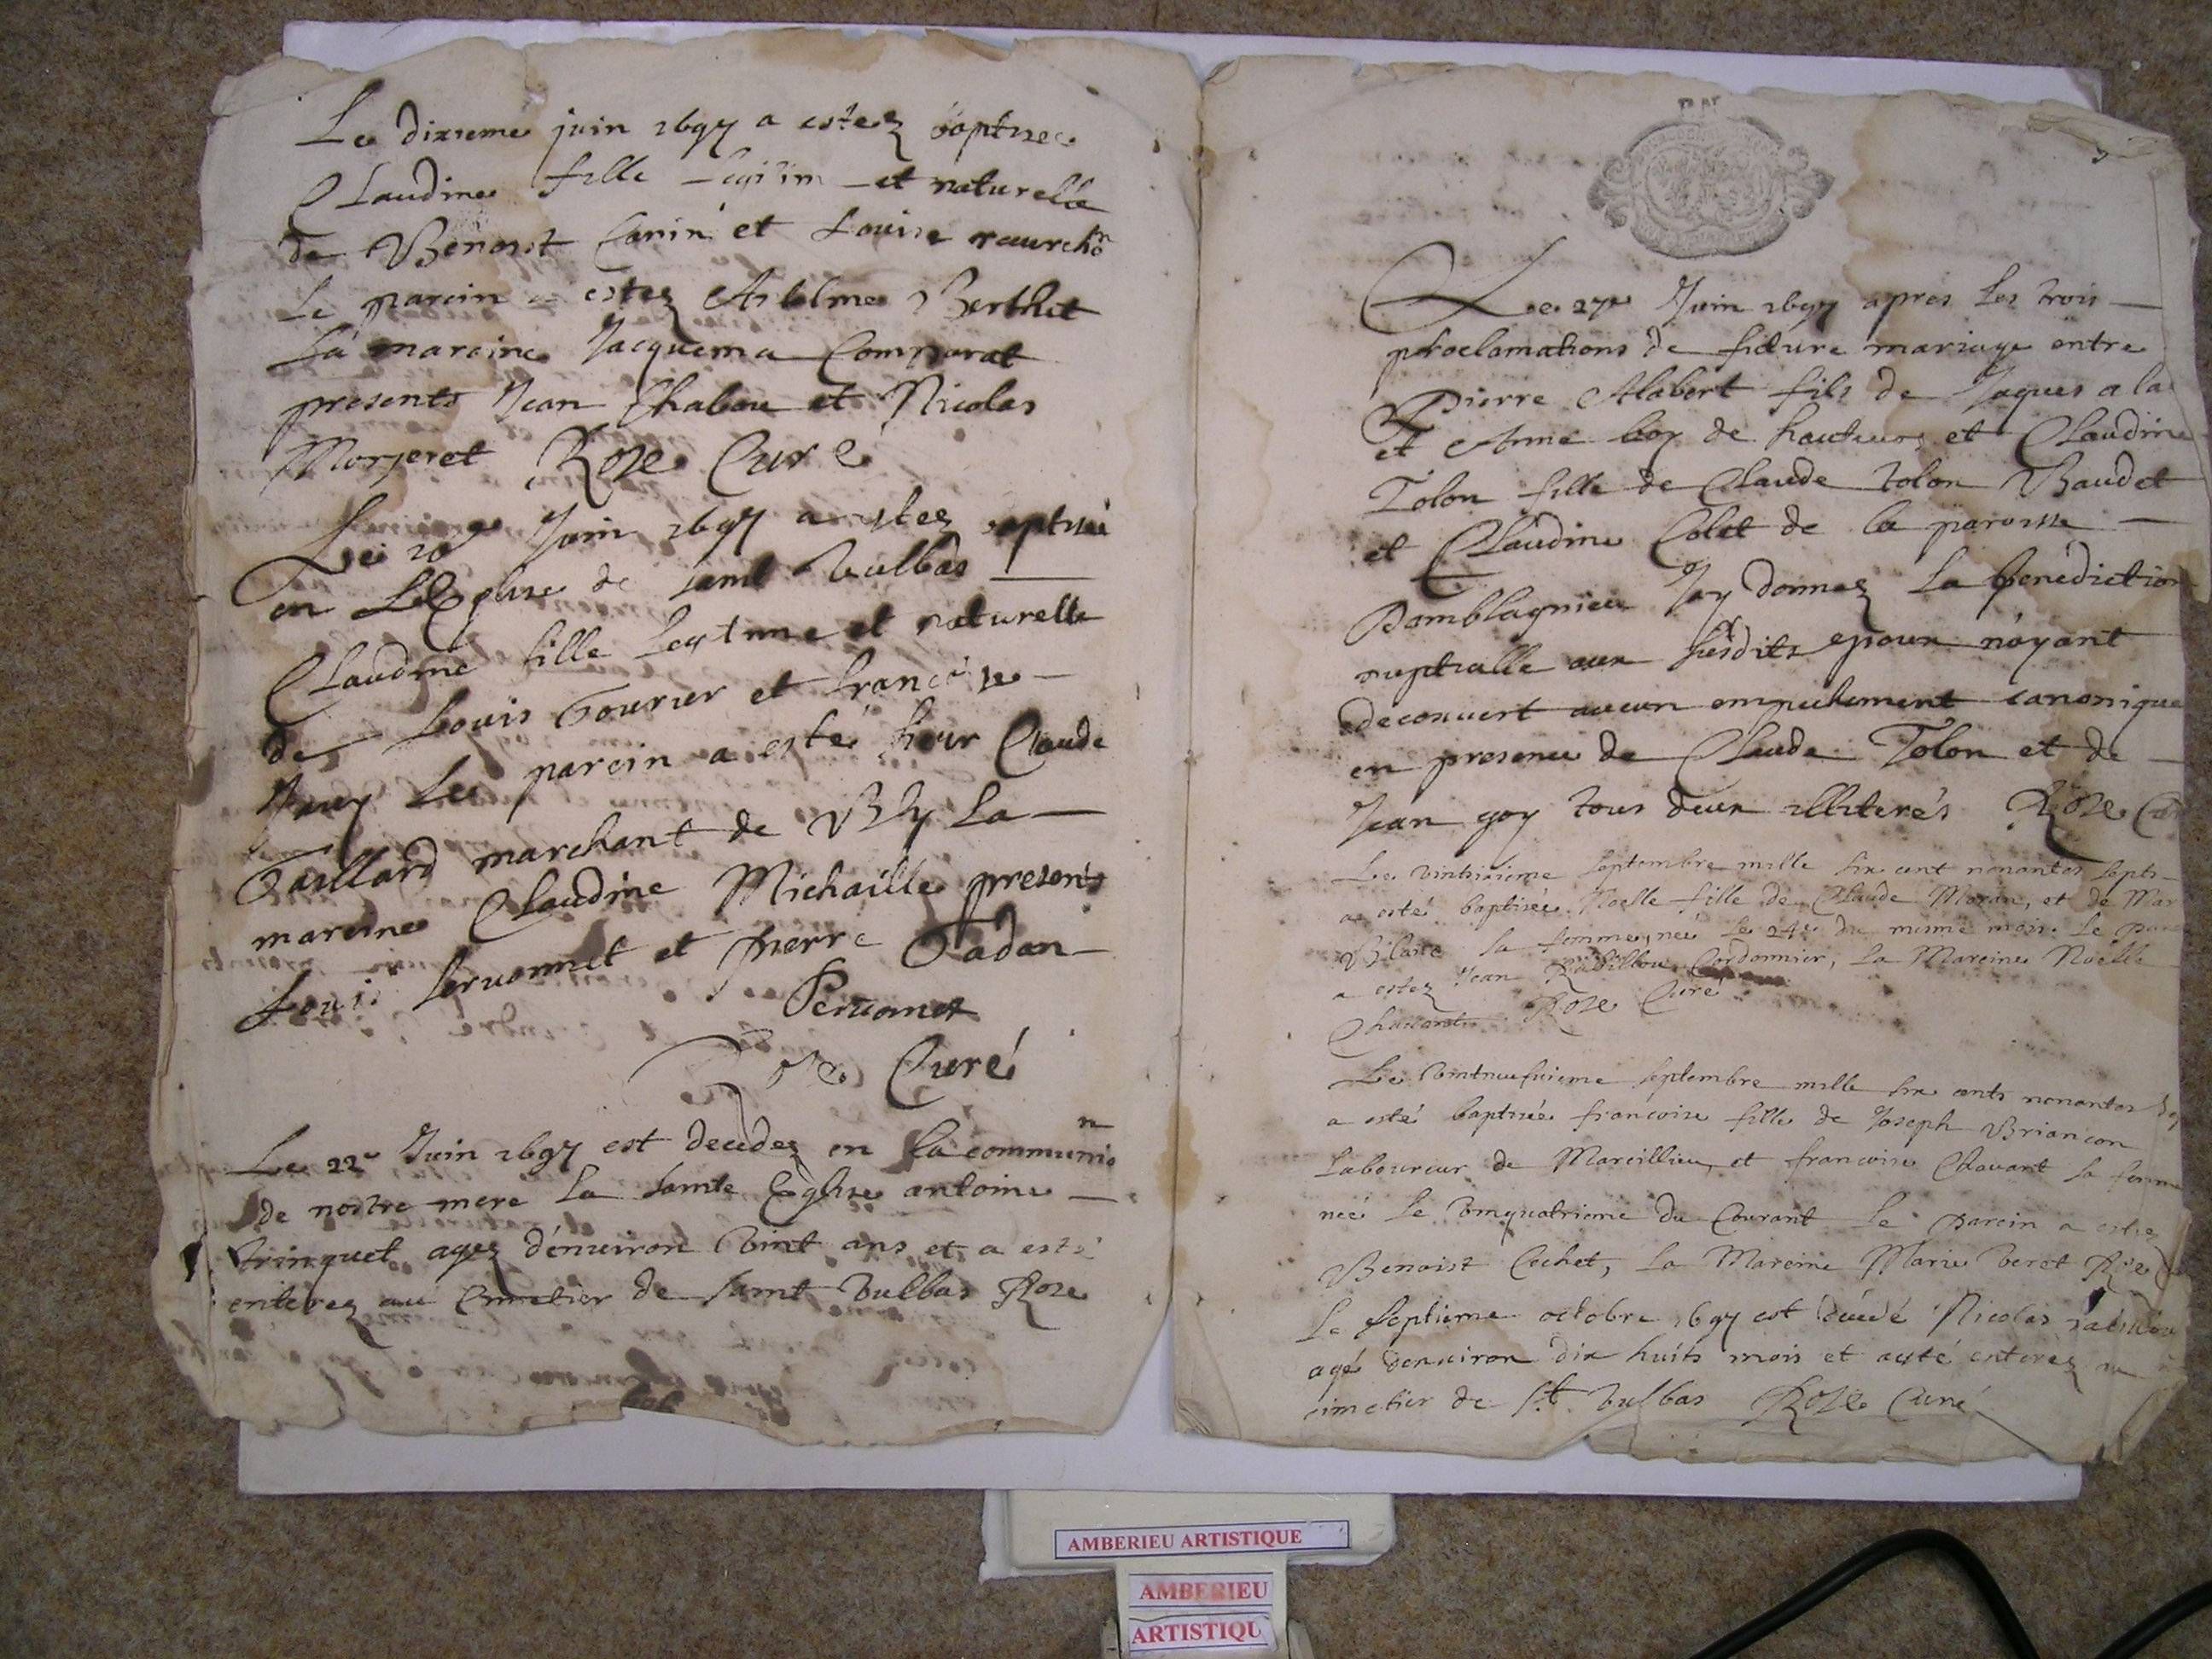 Le dixieme juin 1697 a estez baptisee
Claudine fille et naturelle
de Benoist Carin et Louise
Le parein a estez Anthelme Berthet
La mareine Jacquema Comparat
presents Jean Chabou et Nicolas
Morjeret Roze Curé
Le 20e Juin 1697 a estez baptisée
en L'Eglise de saint Vulbas
Claudine fille legitime et naturelle
de Louis Fourier et francoise
Le parein a esté sieur Claude
Gaillard marchant de Bly La
mareine Claudine Michaille presents
Louis Peruonnet et pierre Tadan
Peruonet
Roze Curé
Le 22e Juin 1697 est decedez en la communio n
de nostre mere la sainte Eglise antoine
trinquet agez d'enuiron vint ans et a esté
enterez au Cimetier de saint Vulbas Roze
Le 27e Juin 1697 apres les trois
proclamations de future mariage entre
Pierre Alabert fils de Jaques ala
et Anne boy de hauteurs et Claudine
Tolon fille de Claude tolon Baudet
et Claudine Colet de la paroisse
Damblagnieu Jay donnez La benediction
nuptialle aux susdits epoux n'ayant
decouuert aucun empechement canonique
en presence de Claude Tolon et de
Jean goy tous deux illiterés Roze
Le septembre mille six cent nonantes septs
a esté baptisée Noelle fille de Claude Moran, et de Mar
sa femme, neé le 24e du mesme mois. Le
a estez Jean Cordonnier, la Mareine Noelle
Roze Curé
Le vintneufuieme septembre mille six cents nonantes
a esté baptisée francoise fille de Joseph Briancon
Laboureur de Marcillieu, et francoise Chauant sa femme
neé le vinquatrieme du Courant le parein a estez
Benoist Cochet, la Mareine Marie veret Roze
Le septieme octobre 1697 est decedé Nicolas
agé denuiron dix huits mois et a esté enterez au
cimetier de St. Vulbas Roze Curé
AMBERIEU ARTISTIQUE
AMBERIEU
ARTISTIQU